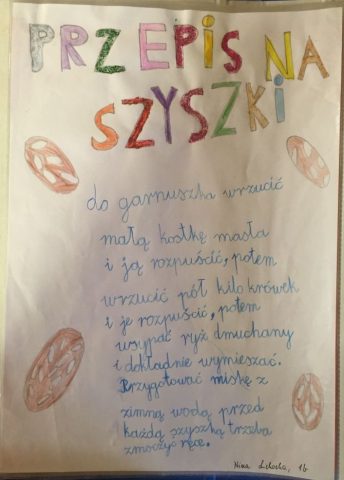 PRZEPIS NA
SZYSZKI
do garnuszka wrzucić
małą kostkę masła
i ją rozpuścić, potem
wrzucić pół kilo krówek
i je rozpuścić, potem
wsypać ryż dmuchany
i dokładnie wymieszać.
Przygotować miskę z
zimną wodą przed
każdą szyszką trzeba
zmoczyć ręce.
Nina 1b